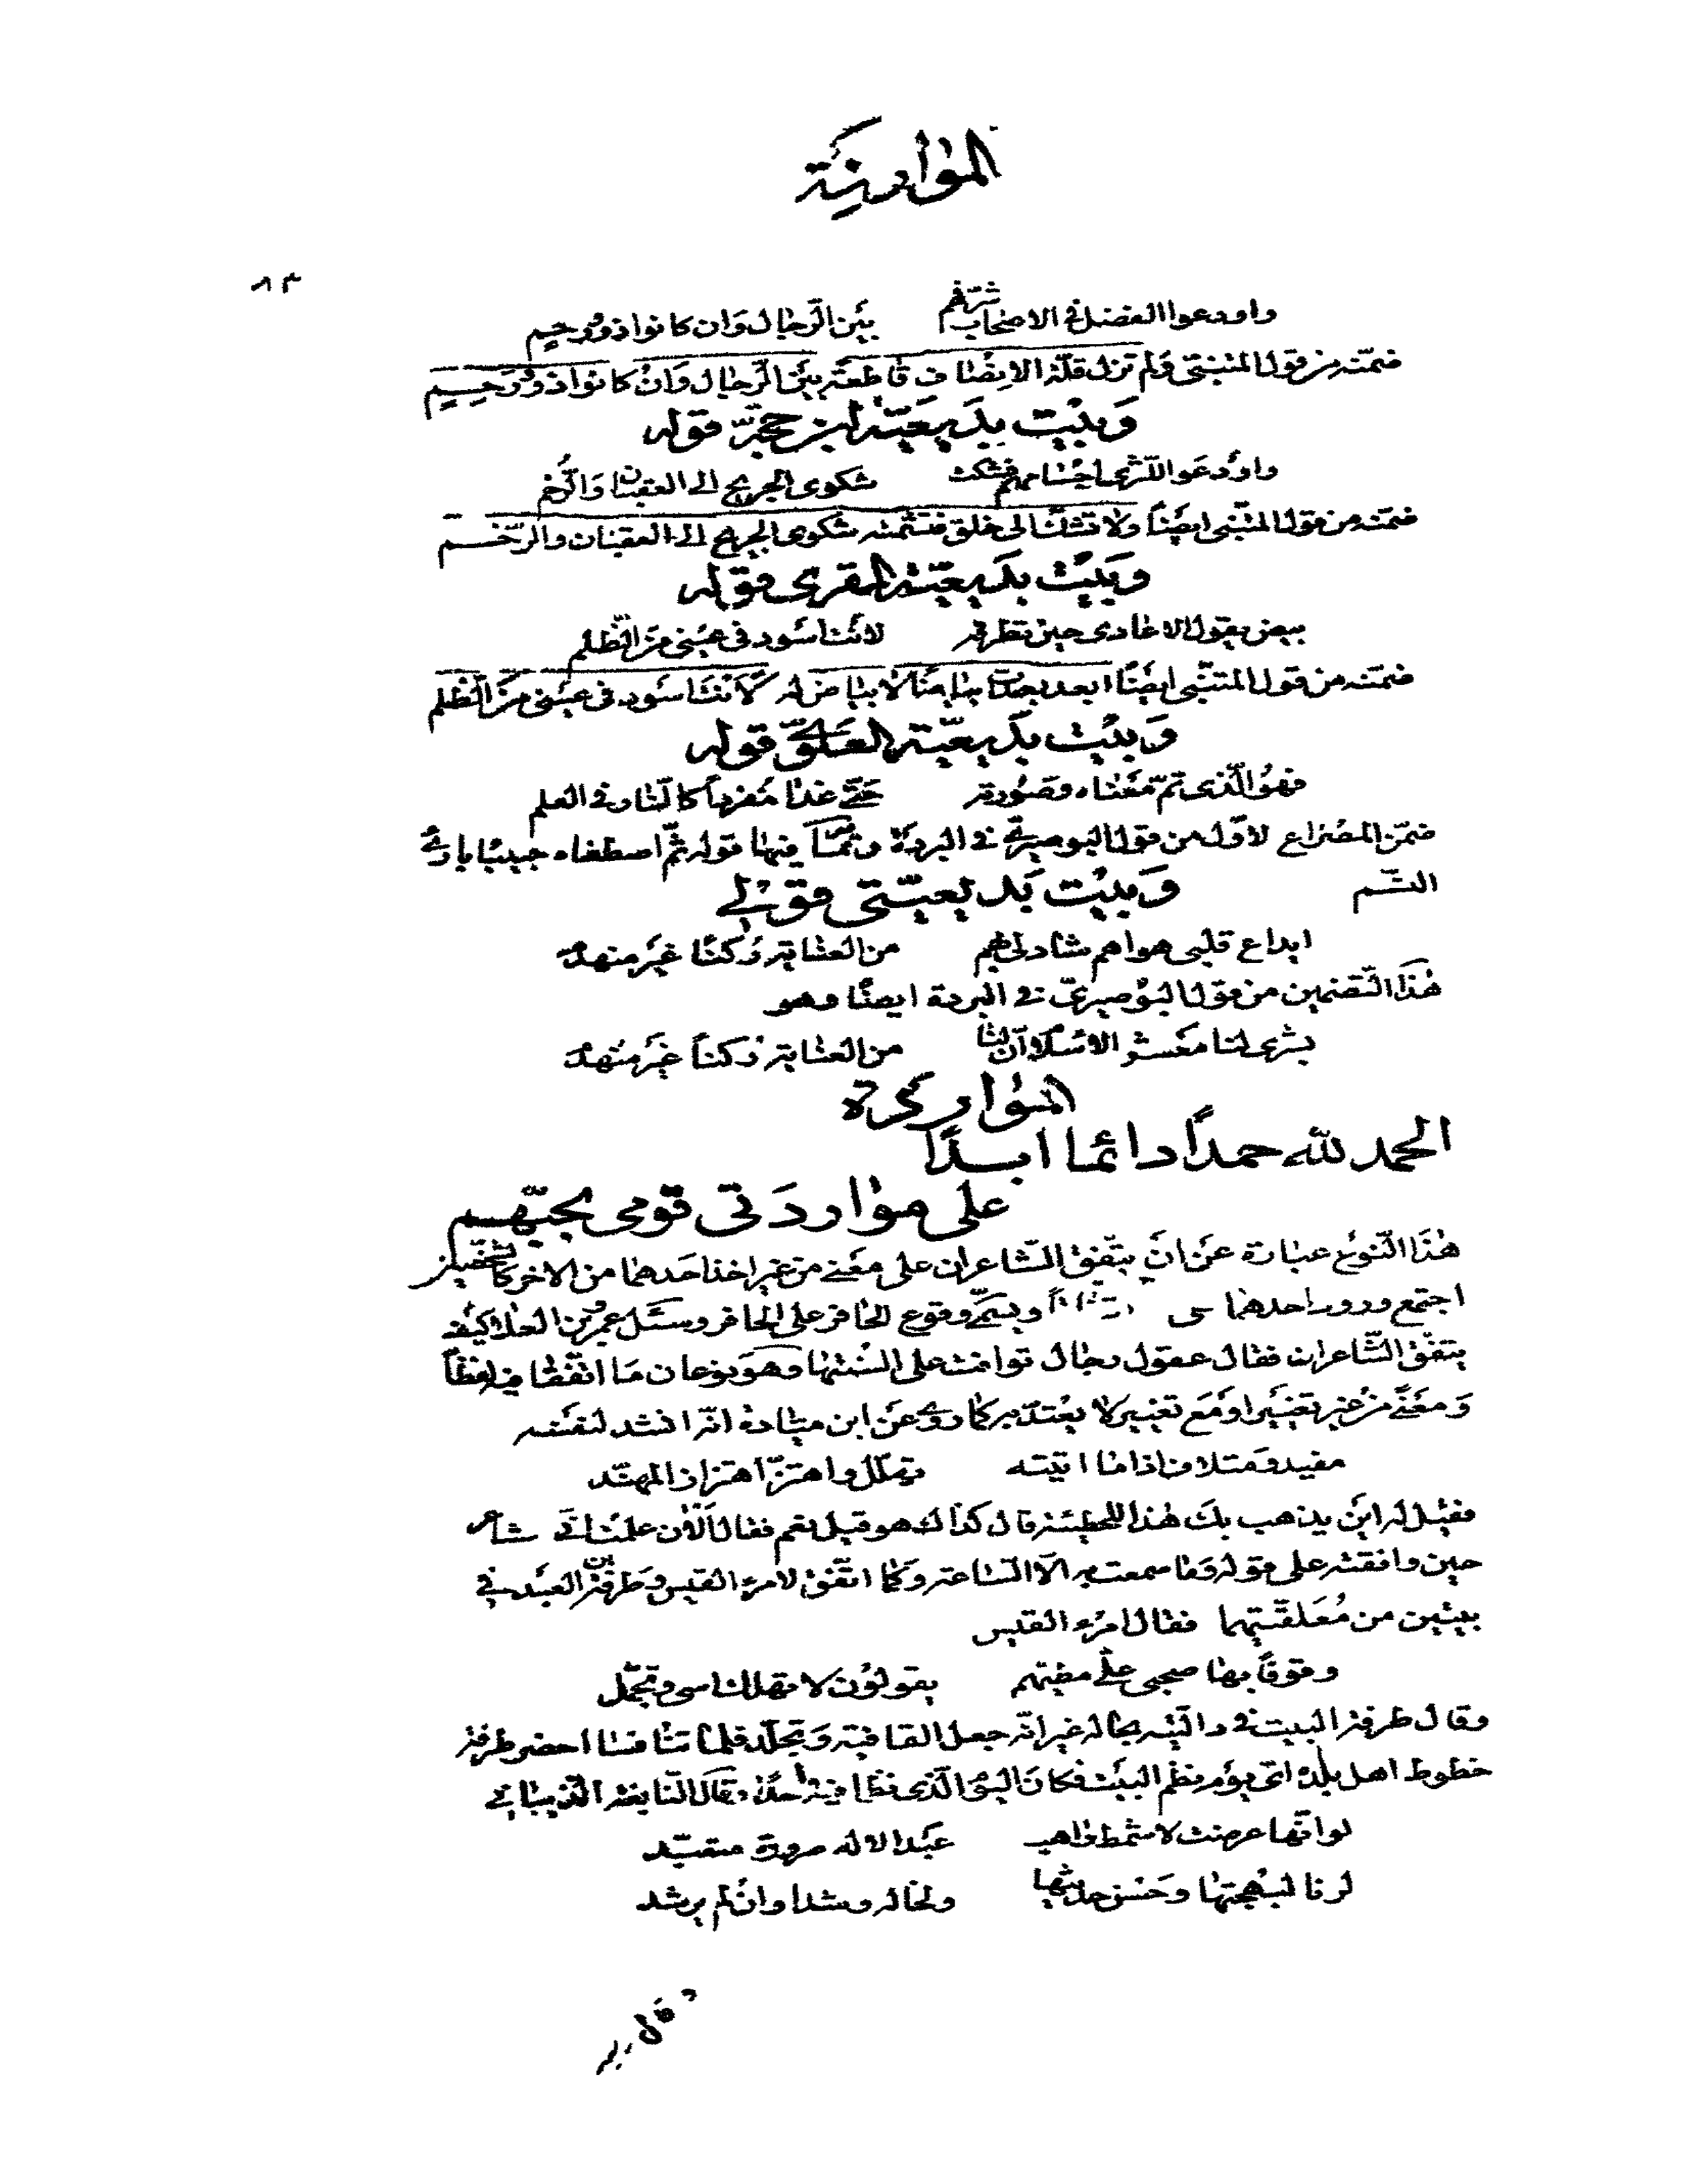 الموازنة
٨٣
واودعوا الفضل في الاصحاب شرفهم بين الرجال وان كانوا ذوى رحم
ضمنه من قول المتنبى ولم تزل قلة الانصاف قاطعة بين الرجال وان كانوا ذوى رحم
وبيت بديعية ابن حجة قوله
واودعوا للثرى اجسامهم فشكت شكوى الجريح الى العقبان والرخم
ضمنه من قول المتنبى ايضا ولا تشك الى خلق فتشمته شكوى الجريح الى العقبان والرخم
وبيت بديعية المقرى قوله
بيض يقول الاعادى حين تطرقهم لانت اسود فى عينى من الظلم
ضمنه من قول المتنبى ايضا ابعد بعدت بياضا لا بياض له لانت اسود فى عينى من الظلم
وبيت بديعية العلوى قوله
فهو الذى تم معناه وصورته حتى غدا مفردا كالنار فى العلم
ضمن المصراع الاول من قول البوصيرى فى البردة وتمام فيها قوله ثم اصطفاه حبيبا بارئ
النسم
وبيت بديعيتى قولى
ايداع قلبى هواهم شاد لى بهم من العناية ركنا غير منهدم
هذا التضمين من قول البوصيرى فى البردة ايضا وهو
بشرى لنا معشر الاسلام ان لنا من العناية ركنا غير منهدم
المواردة
الحمد لله حمدا دائما ابدا
على مواردتى قومى بحبهم
هذا النوع عبارة عن ان يتفق الشاعران على معنى من غير اخذ احدهما من الاخر كشخصين
اجتمع ورود احدهما ويسمى وقوع الحافر على الحافر وسئل عمرو بن العلا كيف
يتفق الشاعران فقال عقول رجال توافت على السنتها وهو نوعان ما اتفقا فيه لفظا
ومعنى من غير تغيير او مع تغيير لا يعتد به كما روى عن ابن ميادة انه انشد لنفسه
مفيد ومتلاف اذا ما اتيته تهلل واهتز اهتزاز المهند
فقيل له اين يذهب بك هذا للحطيئة قال كذاك هو قيل نعم فقال الان علمت انى شاعر
حين وافقته على قوله وما سمعت به الا الساعة وكما اتفق لامرء القيس وطرفة بن العبد فى
بيتين من معلقتيهما فقال امرء القيس
وقوفا بها صحبى على مطيهم يقولون لا تهلك اسى وتجمل
وقال طرفة البيت فى داليته بحاله غير انه جعل القافية وتجلد فلما تنافسا احضر طرفة
خطوط اهل بلده اى يوم نظم البيت فكان اليوم الذى نظما فيه واحدا وقال النابغة الذبيانى
لو انها عرضت لاشمط راهب عبد الاله صرورة متعبد
لرنا لبهجتها وحسن حديثها ولخاله رشدا وان لم يرشد